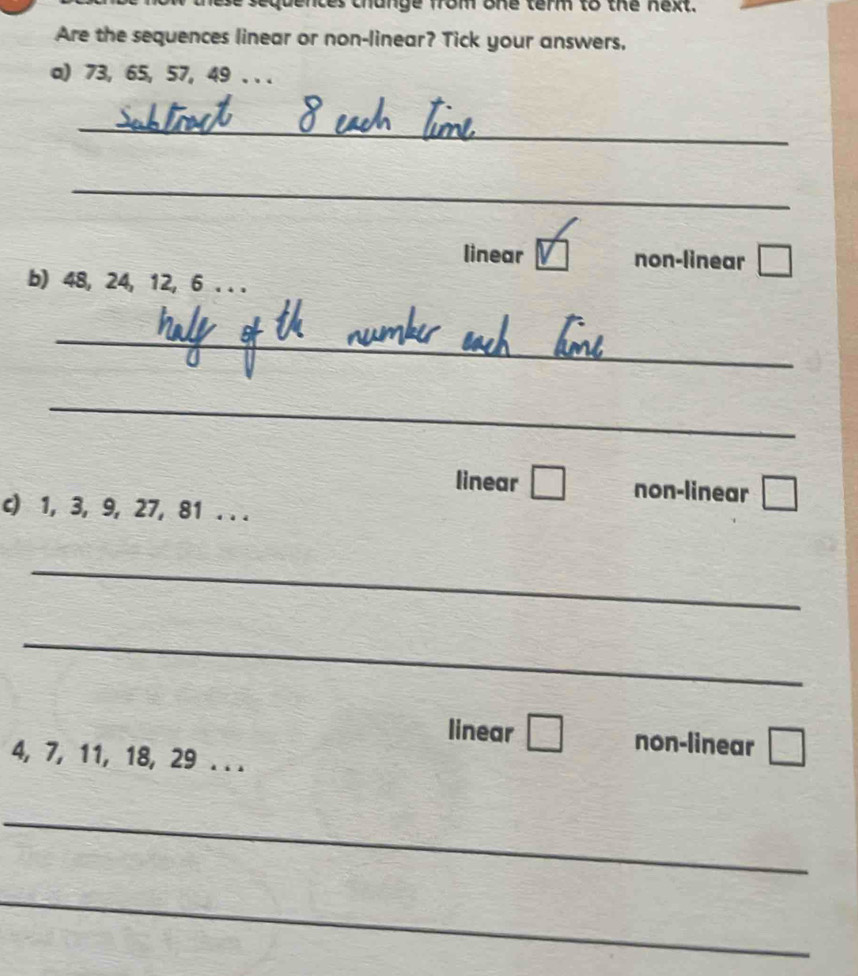 Describe how these sequences change from one term to the next.
Are the sequences linear or non-linear? Tick your answers.
a) 73, 65, 57, 49 ...
Subtract 8 each time
linear ☑ non-linear ☐
b) 48, 24, 12, 6 ...
half of the number each time
linear ☐ non-linear ☐
c) 1, 3, 9, 27, 81 ...
linear ☐ non-linear ☐
4, 7, 11, 18, 29 ...